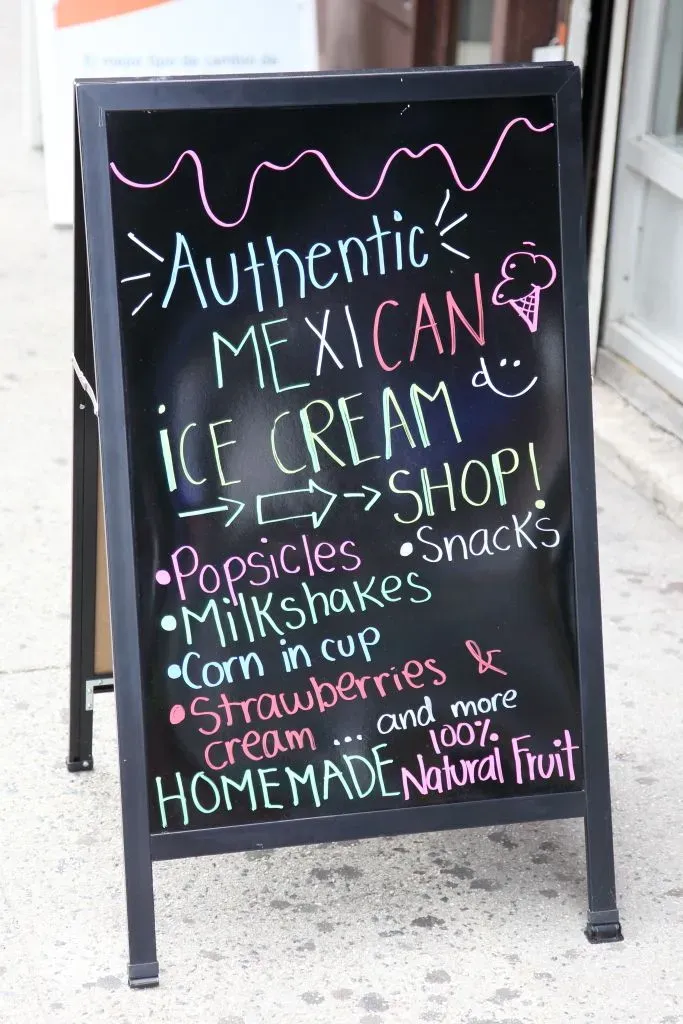 El mejor tipo de cambio de
Authentic
MEXICAN
iCE CREAM
SHOP!
•Popsicles •Snacks
•Milkshakes
•Corn in cup
•Strawberries &
cream ... and more
HOMEMADE 100% Natural Fruit